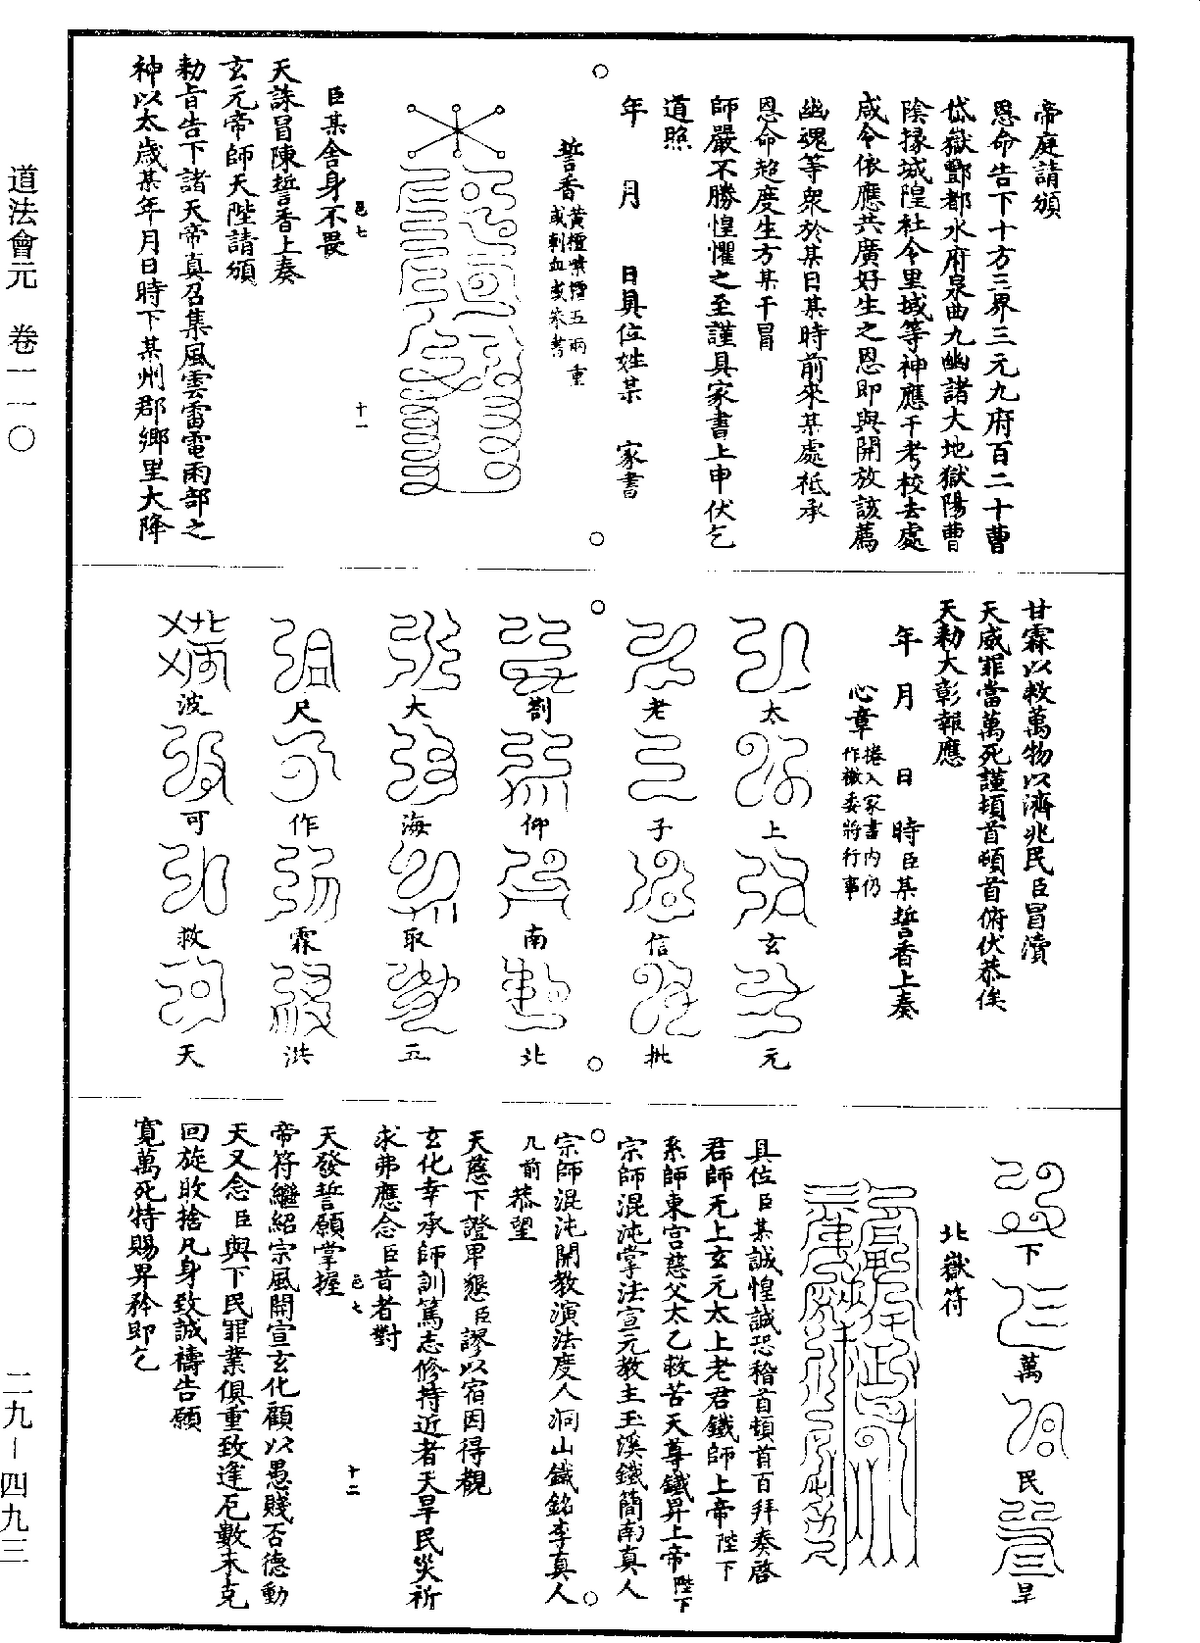 道法會元　卷一一〇
二九－四九三
帝庭請頒
恩命告下十方三界三元九府百二十曹
岱獄酆都水府泉曲九幽諸大地獄陽曹
陰掾城隍社令里域等神應干考校去處
咸令依應共廣好生之恩即與開放該薦
幽魂等衆於某日某時前來某處祗承
恩命超度生方某干冒
師嚴不勝惶懼之至謹具家書上申伏乞
道照
年　月　日具位姓某　家書
誓香黃檀
或刺血或朱書
邑七
十一
臣某舍身不畏
天誅冒陳誓香上奏
玄元帝師天陛請頒
勑旨告下諸天帝真召集風雲雷電雨部之
神以太歲某年月日時下某州郡鄉里大降
甘霖以救萬物以濟兆民臣冒瀆
天威罪當萬死謹頓首頓首俯伏恭俟
天勑大彰報應
年　月　日　時臣某誓香上奏
心章捲入家書內仍
作檄委將行事
太　上　玄　元
老　子　信　批
劄　仰　南　北
大　海　取　五
尺　作　霖　洪
波　可　救　天
下　萬　民　旱
北嶽符
具位臣某誠惶誠恐稽首頓首百拜奏啓
君師无上玄元太上老君鐵師上帝陛下
系師東宮慈父太乙救苦天尊鐵昇上帝陛下
宗師混沌掌法宣元教主玉溪鐵簡南真人
宗師混沌開教演法度人洞山鐵銘李真人
几前恭望
天慈下證卑懇臣謬以宿因得覩
玄化幸承師訓篤志修持近者天旱民災祈
求弗應念臣昔者對
天發誓願掌握
邑七
十二
帝符繼紹宗風開宣玄化顧以愚賤否德動
天又念臣與下民罪業俱重致逢厄數未克
回旋敢捨凡身致誠禱告願
寬萬死特賜昇矜即乞